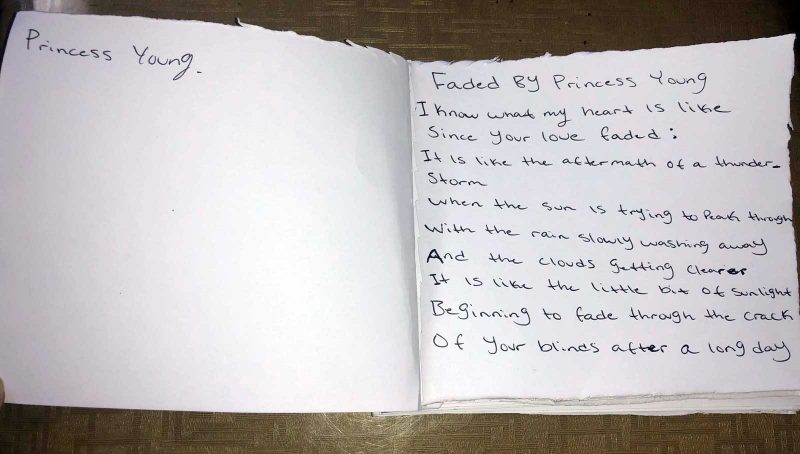 Princess Young.
Faded By Princess Young
I know what my heart is like
Since your love faded:
It is like the aftermath of a thunder-
Storm
when the sun is trying to Peak through
With the rain slowly washing away
And the clouds getting clearer
It is like the little bit of sunlight
Beginning to fade through the crack
Of your blinds after a long day